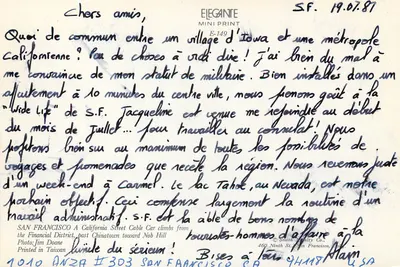 Chers amis,
ELEGANTE
MINI PRINT
E-149
S.F. 19.07.87
Quoi de commun entre un village d'Iowa et une métropole
californienne? Peu de choses à vrai dire! J'ai bien du mal à
me convaincre de mon statut de militaire. Bien installés dans un
appartement à 10 minutes du centre ville, nous prenons goût à la
"wide life" de S.F. Jacqueline est venue me rejoindre au début
du mois de Juillet... pour travailler au consulat! Nous
profitons bien sûr au maximum de toutes les possibilités de
voyages et promenades que recèle la région. Nous revenons juste
d'un week-end à Carmel. Le lac Tahoe, au Nevada, est notre
prochain objectif. Ceci compense largement la routine d'un
travail administratif. S.F. est la cible de bons nombre de
SAN FRANCISCO A California Street Cable Car climbs from
the Financial District, past Chinatown toward Nob Hill
Photo: Jim Doane
Printed in Taiwan
touristes, hommes d'affaire à la
limite du sérieux! Bises à Tous Alain
1010 ANZA # 303 SAN FRANCISCO CA 94118 USA